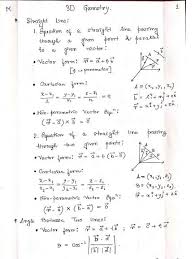 M 3D Geometry. 1
Straight line:
1. Equation of a straight line passing
through a given point & parallel
to a given vector:
• Vector form: r = a + t b
[t → parameter]
• Cartesian form:
x-x₁/b₁ = y-y₁/b₂ = z-z₁/b₃
A = (x₁, y₁, z₁)
• Non-parametric vector Eqⁿ:
(r - a) × b = 0
2. Equation of a straight line passing
through two given points:
• Vector form: r = a + t(b - a)
• Cartesian form:
x-x₁/x₂-x₁ = y-y₁/y₂-y₁ = z-z₁/z₂-z₁
A = (x₁, y₁, z₁)
B = (x₂, y₂, z₂)
• Non-parametric vector Eqⁿ:
(r - a) × (b - a) = 0
Angle Between Two lines:
• Vector form:
θ = cos⁻¹